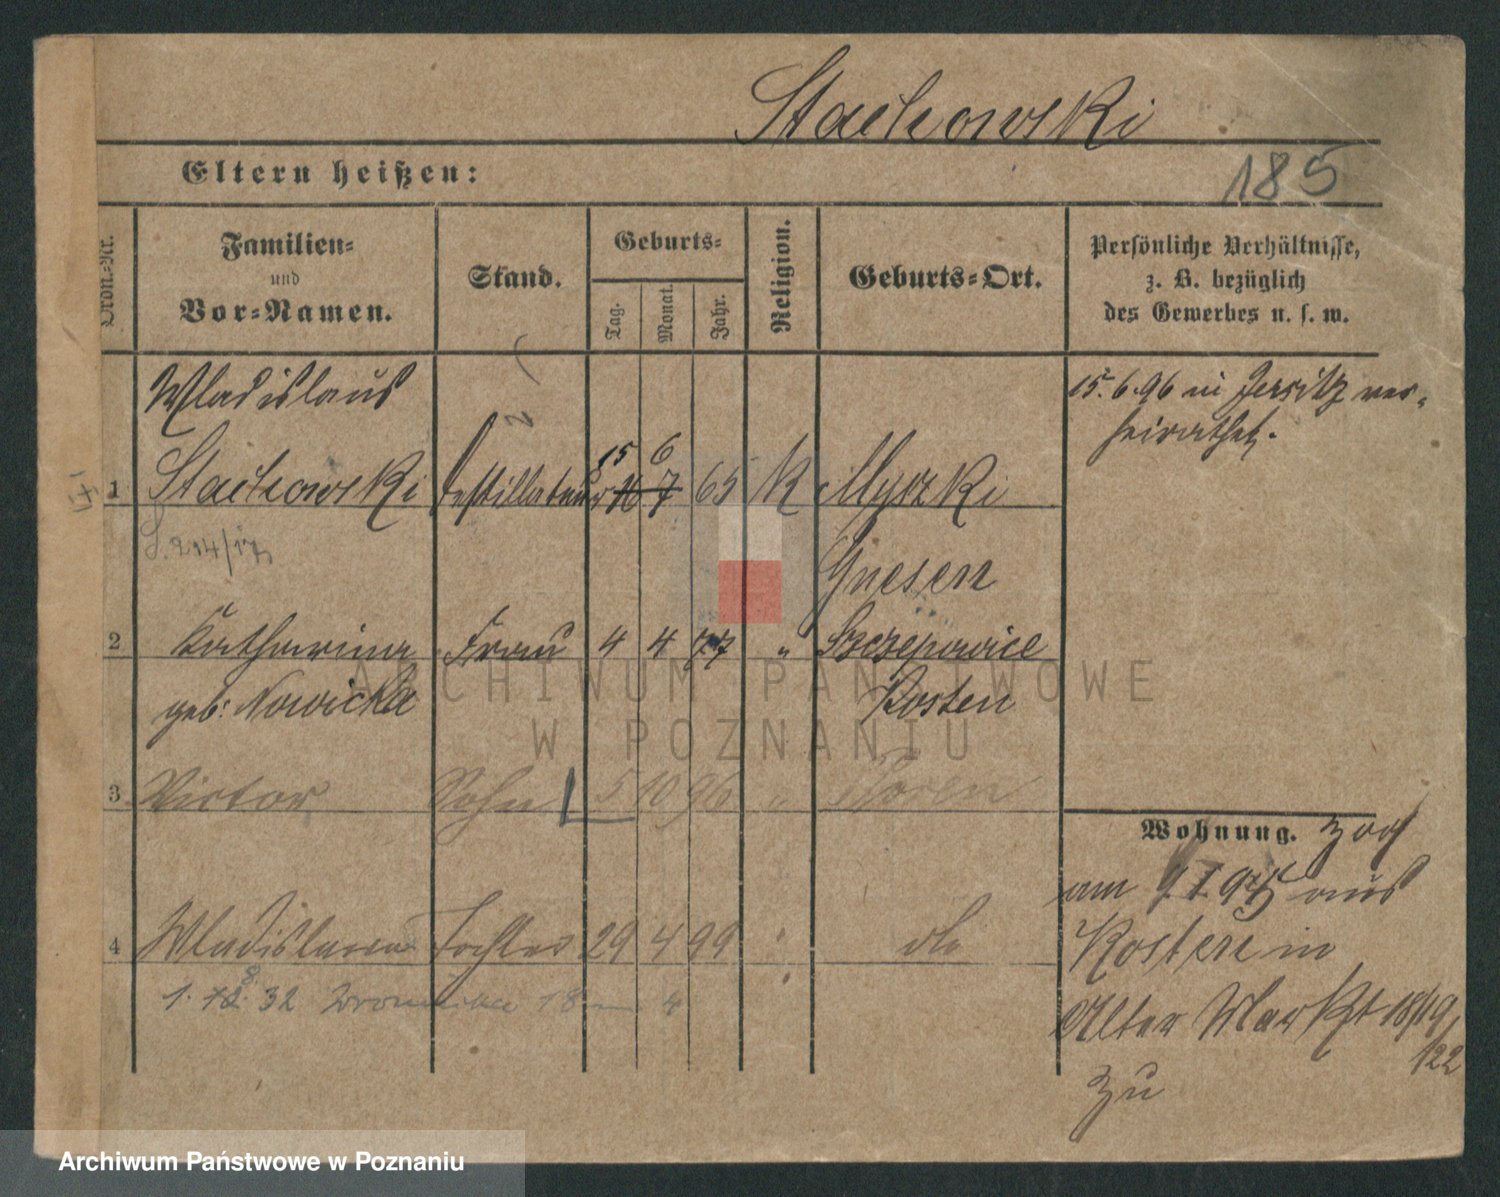 Stachowski
185
Eltern heißen:
Ordn.-Nr.
Familien-
und
Vor-Namen.
Stand.
Geburts-
Tag.
Monat.
Jahr.
Religion.
Geburts-Ort.
Persönliche Verhältnisse,
z. B. bezüglich
des Gewerbes u. s. w.
Wladislaus
15. 6. 96 in Jersitz ver-
heirathet.
15 6
1 Stachowski Destillateur 16 7 65 K Myszki
214/17
Gnesen
2 Katharina Frau 4 4 77 " Szczepowice
geb: Nowicka Kosten
ARCHIWUM PAŃSTWOWE
W POZNANIU
3 Victor Sohn 5 10 96 " Posen
Wohnung. zog
am 9 I 95 aus
4 Wladislawa Tochter 29 4 99 " do
Kosten in
1. 8. 32 18 4
Alter Markt 18/19
/22
zu
Archiwum Państwowe w Poznaniu